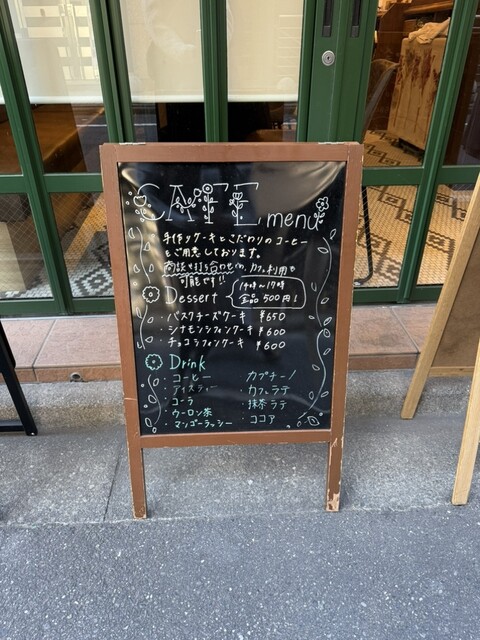 CAFE menu
手作りケーキとこだわりのコーヒー
もご用意しております。
商談や打ち合わせetc、カフェ利用も
可能です!!
Dessert
14時~17時
全品 500円!
・バスクチーズケーキ ¥650
・シナモンシフォンケーキ ¥600
・チョコシフォンケーキ ¥600
Drink
・コーヒー ・カプチーノ
・アイスティー ・カフェラテ
・コーラ ・抹茶ラテ
・ウーロン茶 ・ココア
・マンゴーラッシー